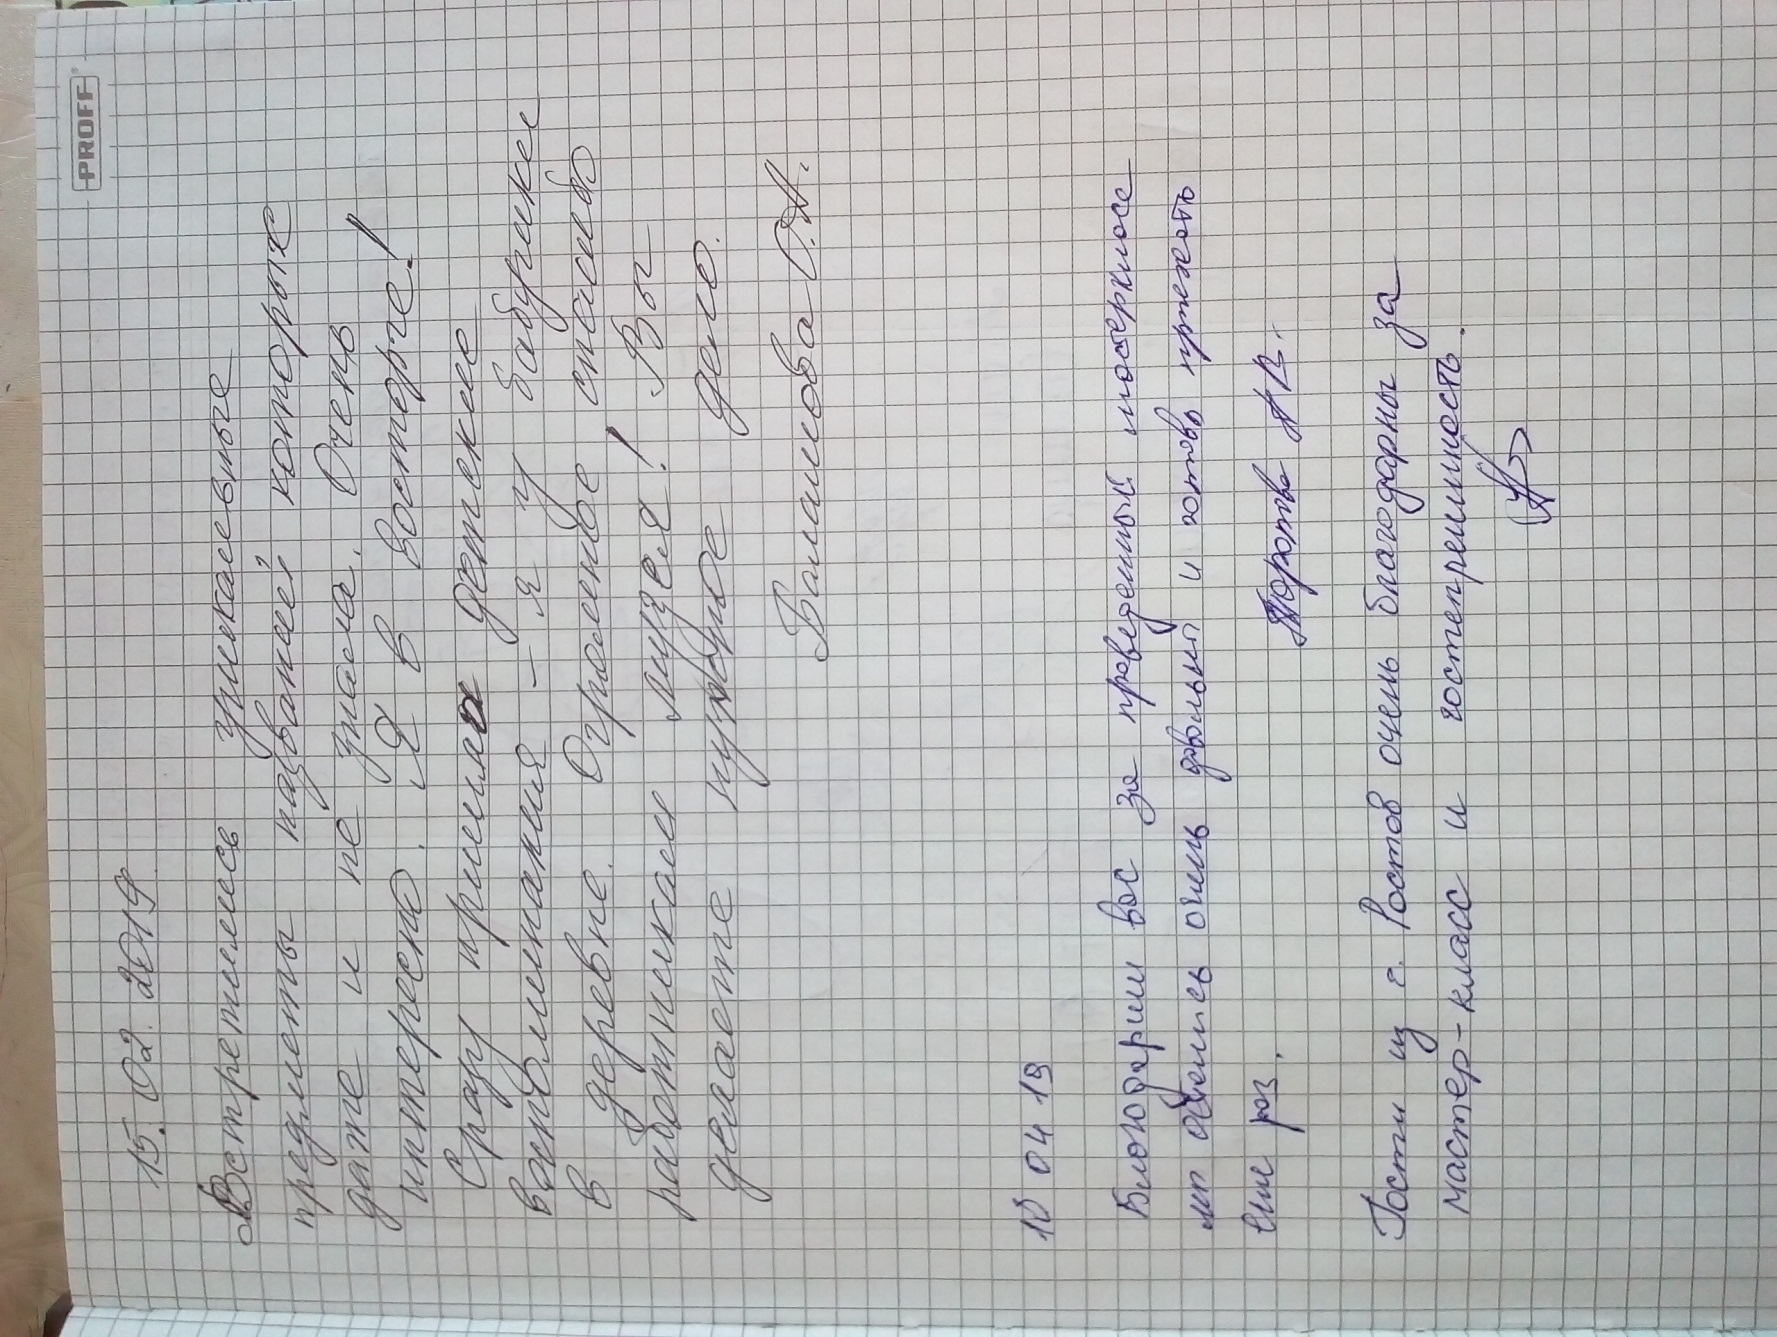 PROFF
15. 02. 2019
Встретились уникальные
предметы названий которых
даже и не знала. Очень
интересно. Я в восторге!
Сразу пришли детские
воспоминания - я у бабушки
в деревне. Огромное спасибо
работникам музея! Вы
делаете нужное дело.
Баламова С.А.
10 04 19
Благодарим вас за проведенный мастеркласс
мы остались очень довольны и готовы приехать
еще раз.
А В.
Гости из г. Ростов очень благодарны за
мастер-класс и гостеприимность.